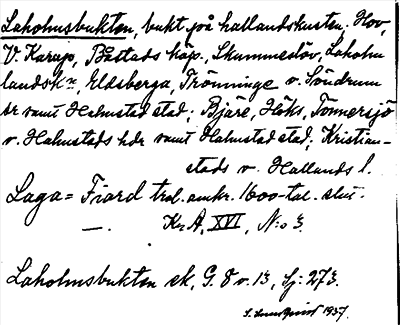 Laholmsbukten, bukt på hallandskusten. Hov,
V. Karup, Båstads köp., Skummeslöv, Laholm
landsk:n, Eldsberga, Trönninge o. Söndrum
sr samt Halmstad stad; Bjäre, Höks, Tönnersjö
o. Halmstads hdr samt Halmstad stad; Kristian-
stads o. Hallands l.
Laga= Fiard trol. omkr. 1600-tal. slut.
—. Kr. A, XVI, N:o 3.
Laholmsbukten ek, G. 8 v. 13, Sj: 273.
1937.